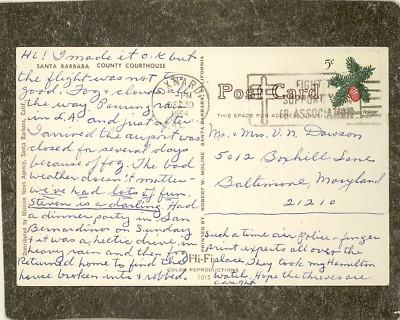 SANTA BARBARA COUNTY COURTHOUSE
Hi! I made it O.K but
the flight was not to
good. Fog & clouds all
the way. Pouring rain
in L.A and just after
I arrived the airport was
closed for several days
because of fog. The bad
weather doesn't matter-
we've had lots of fun.
Steven is a darling. Had
a dinner party in San
Bernardino on Sunday
& it was a hectic drive in
heavy rain and then
Returned home to find the
house broken into & robbed.
Such a time air Police & finger
print experts all over the
place. They took my Hamilton
watch. Hope the thieves are
caught
Distributed by Mission News Agency, Santa Barbara, Calif.
SANTA BARBARA, CALIFORNIA
PRINTED BY ROBERT W. MOLINE
Hi-Fi
COLOR REPRODUCTIONS
1015
Post Card
THIS SPACE FOR ADDRESS
OXNARD
1964
FIGHT
SUPPORT
ASSOCIATION
5¢
Mr. & Mrs. V. N. Dawson
5012 Boxhill Lane
Baltimore, Maryland
21210